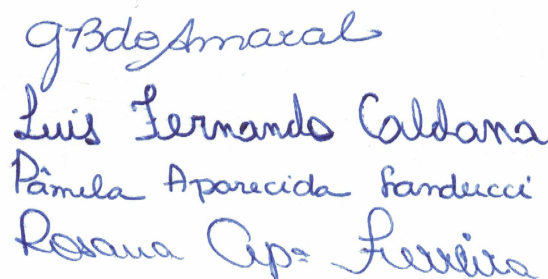 GBdoAmaral
Luis Fernando Caldana
Pâmela Aparecida Sanducci
Rosana Apª Ferreira